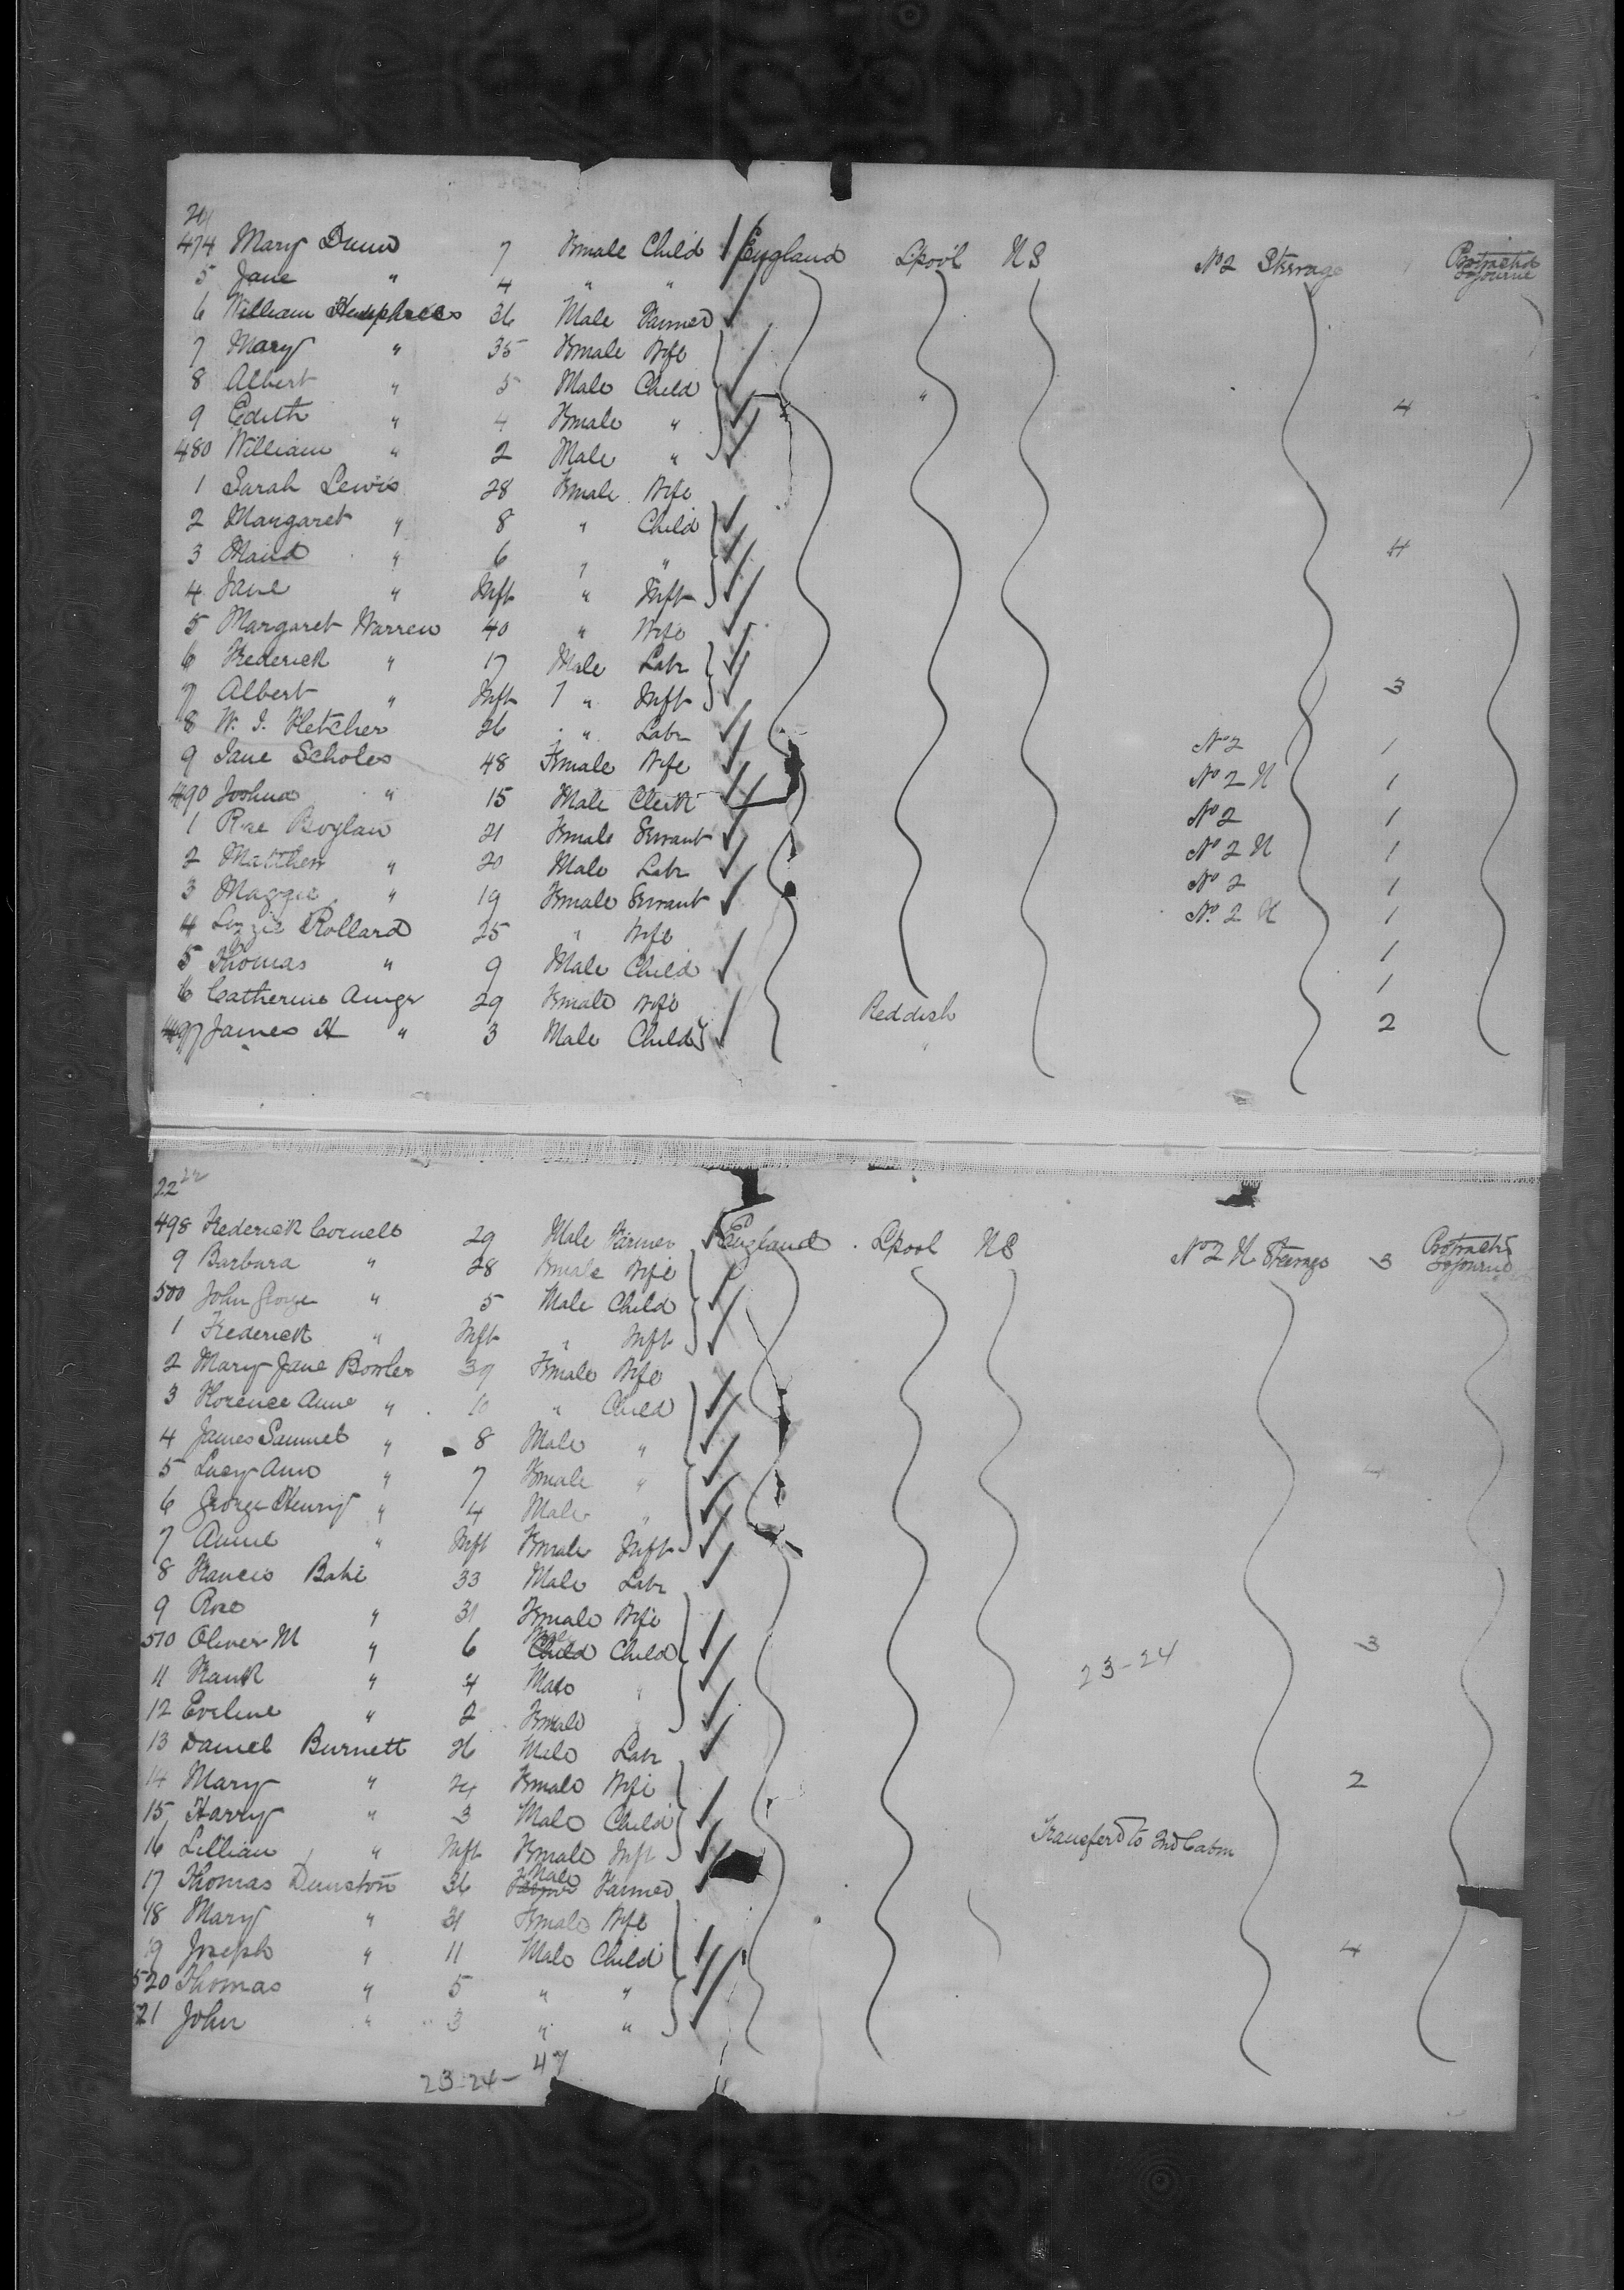 21
474 Mary Dunn 7 Female Child England Lpool US No 2 Steerage Protracted Sojourn
5 Jane " 4 " "
6 William Humphries 36 Male Farmer
7 Mary " 35 Female Wife
8 Albert " 5 Male Child "
9 Edith " 4 Female " 4
480 William " 2 Male "
1 Sarah Lewis 28 Female Wife
2 Margaret " 8 " Child
3 Maud " 6 " " 4
4 Jane " Inft " Inft
5 Margaret Warren 40 " Wife
6 Frederick " 17 Male Labr
7 Albert " Inft " Inft 3
8 W. J. Fletcher 26 " Labr No 2 1
9 Jane Scholes 48 Female Wife No 2 U 1
490 Joshua " 15 Male Clerk No 2 1
1 Rose Boylan 21 Female Servant No 2 U 1
2 Matthew " 20 Male Labr No 2 1
3 Maggie " 19 Female Servant No. 2 U 1
4 Lizzie Rollard 25 " Wife 1
5 Thomas " 9 Male Child 1
6 Catherine 29 Female Wife Reddish
497 James H " 3 Male Child " 2
22 22
498 Frederick Cornell 29 Male Farmer England Lpool US No 2 U Steerage 3 Protracted Sojourn
9 Barbara " 28 Female Wife
500 John George " 5 Male Child
1 Frederick " Inft " Inft
2 Mary Jane Bowler 39 Female Wife
3 Florence Anne " 10 " Child
4 James Samuel " 8 Male "
5 Lucy Ann " 7 Female " 4
6 George Henry " 4 Male "
7 Annie " Inft Female Inft
8 Francis 33 Male Labr
9 Rose " 31 Female Wife
510 Oliver M " 6 Male Child Child 23-24 3
11 Frank " 4 Male "
12 Eveline " 2 Female "
13 Daniel Burnett 26 Male Labr
14 Mary " 24 Female Wife 2
15 Harry " 3 Male Child
16 Lillian " Inft Female Inft Transferd to 2nd Cabin
17 Thomas Dunston 36 Male Farmer
18 Mary " 31 Female Wife
19 Joseph " 11 Male Child 4
520 Thomas " 5 " "
521 John " 3 " "
23-24- 47